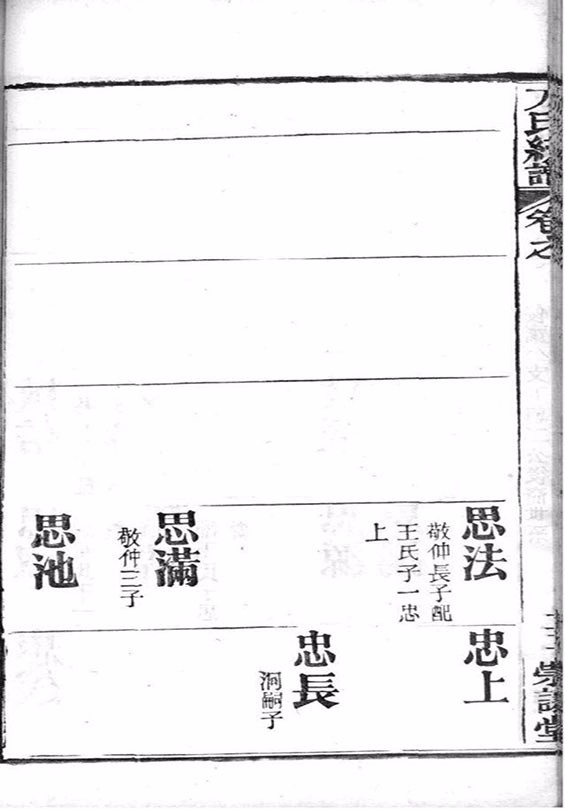 氏譜
卷之
堂
思法
敬仲長子配
王氏子一忠
上
思滿
敬仲三子
思池
忠上
忠長
洞嗣子